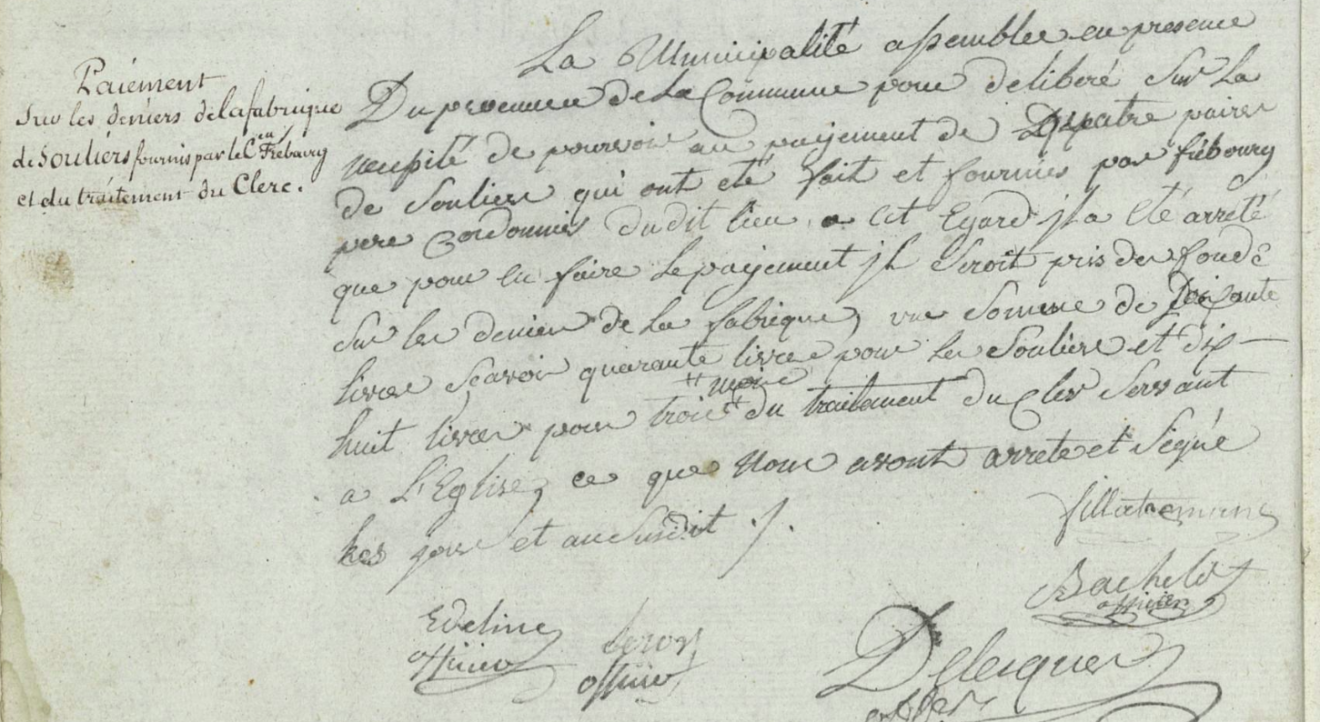 Paiement
Sur les deniers de la fabrique
de Souliers fournis par le C.en Frébourg
et du traitement du Clerc.
La Municipalité assemblee en presence
Du procureur de La Commune pour deliberé Sur La
necessité de pourvoir au payement de quatre paires
de Soulier qui ont eté fait et fournies par frébourg
pere Cordonnier dudit lieu a cet Egard jl a eté arreté
que pour en faire Le payement jl Seroit pris des fond
Sur les denier de La fabrique, une Somme de
livres Scavoir quarante livres pour les Souliers et dix-
huit livres pour trois mois du traitement du Cler Servant
a L'Eglise, ce que Nous avont arrete et Signé
les jour et an Susdit ./.
Bachelot
officier
Edeline
officier
Leroy
officier